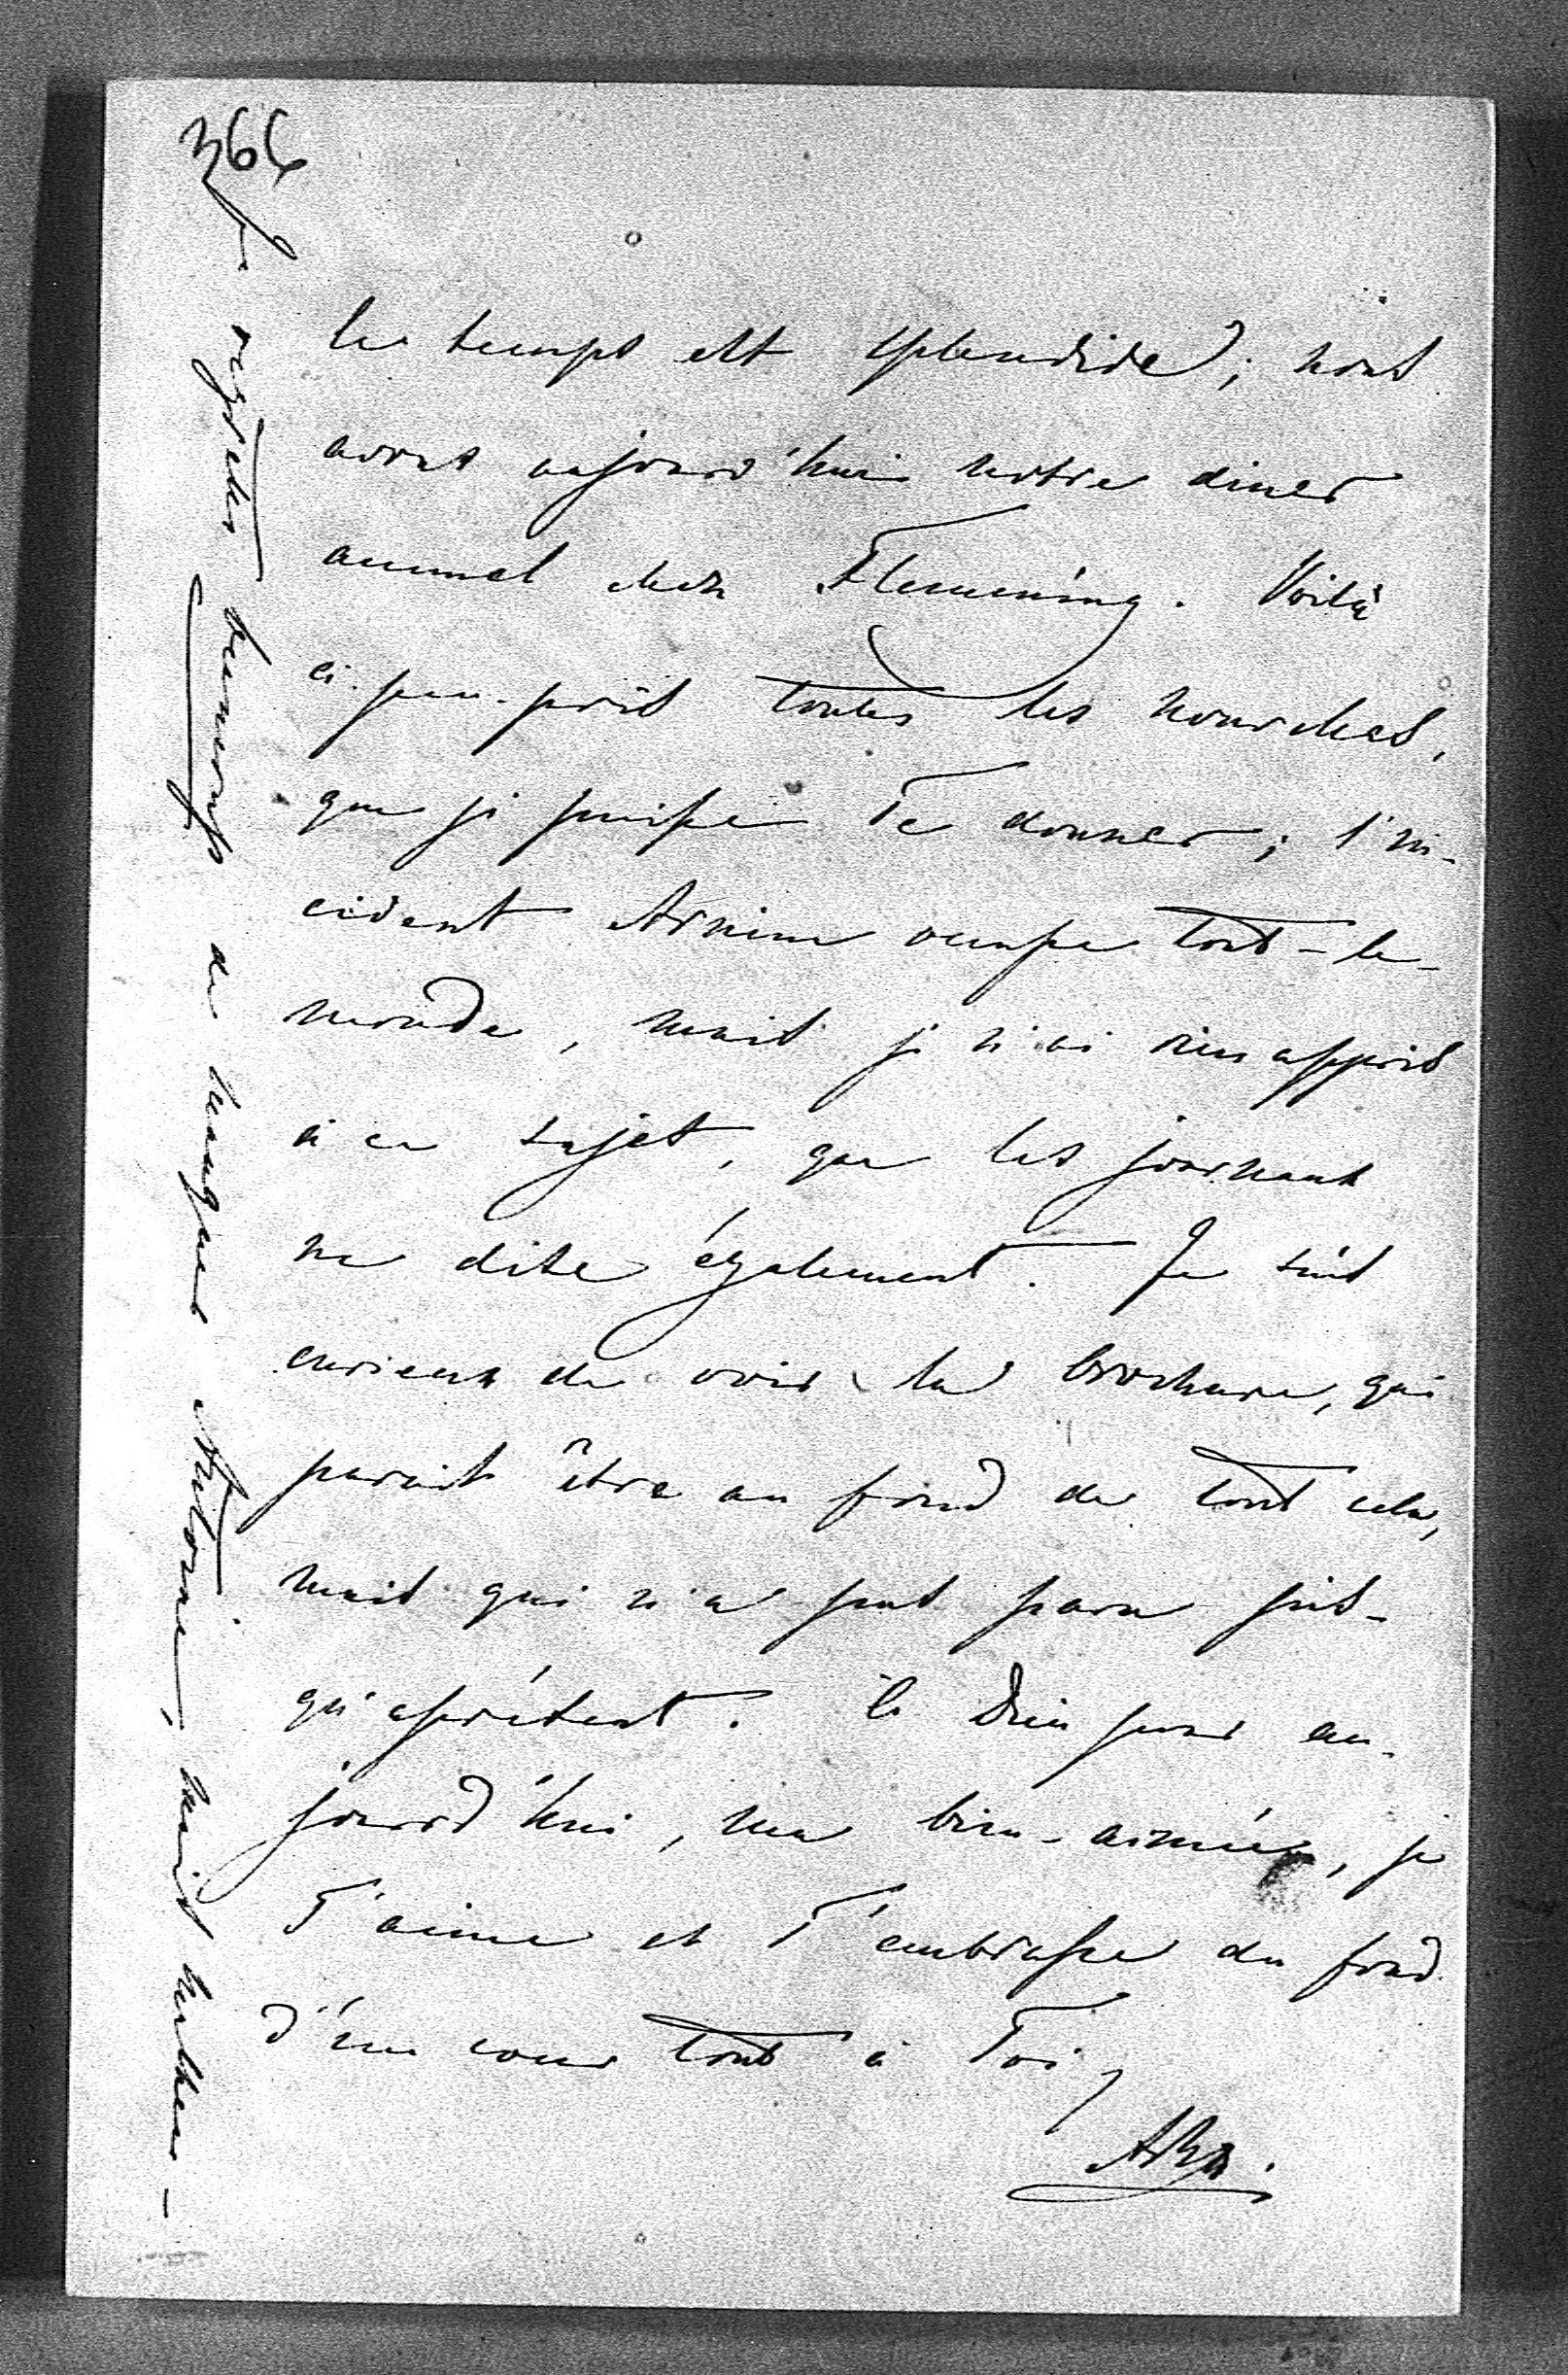 366
le temps est splendide; nous
avons aujourd'hui notre diner
annuel chez Flemming. Voilà
à-peu-près toutes les nouvelles,
que je puisse Te donner; l'in-
cident Arnim occupe tout-le-
monde, mais je n'ai rien appris
à ce sujet, que les journaux
ne dise également. Je suis
curieux de voir la brochure, qui
parait être au fond de tout cela,
mais qui n'a pas paru jus-
qu'aprésent. à Dieu pour au-
jourd'hui, ma bien-aimée, je
T'aime et T'embrasse du fond
d'un cœur tout à Toi,
Je regrette beaucoup de manquer Antonie, mais